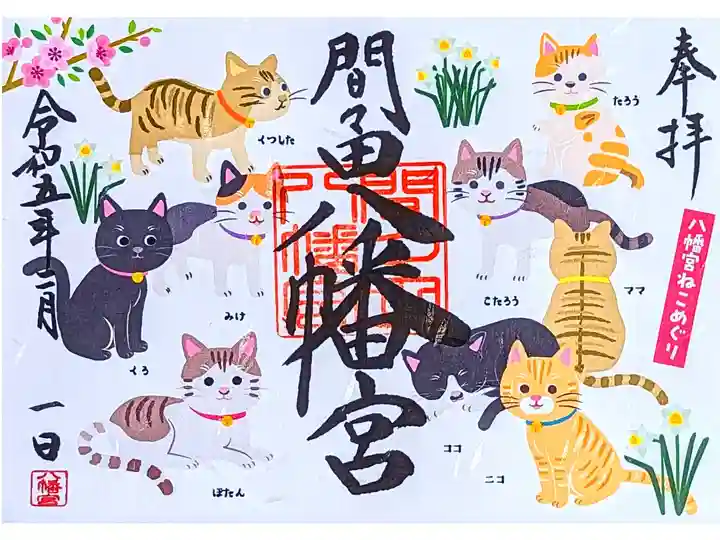 奉拝
八幡宮ねこめぐり
間々田八幡宮
令和五年二月
一日
くつした
たろう
みけ
こたろう
ママ
くろ
ココ
ニコ
ぼたん
八幡宮